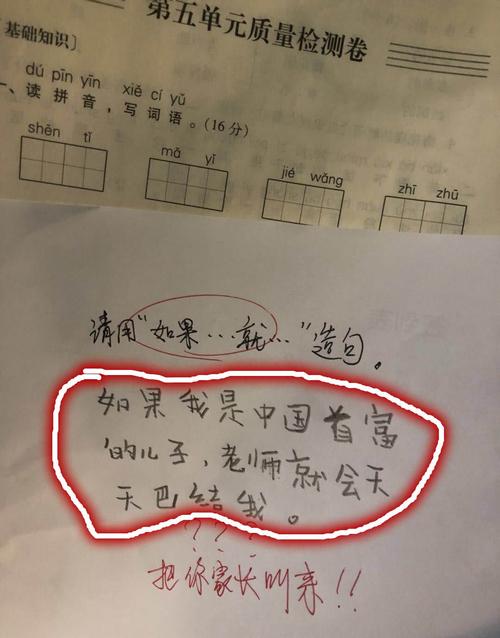 第五单元质量检测卷
基础知识〕
dú pīn yīn xiě cí yǔ
一、读拼音，写词语。(16分)
shēn tǐ mǎ yǐ jié wǎng zhī zhū
请用“如果…就…”造句。
如果我是中国首富
的儿子，老师就会天
天巴结我。
? ? ?
把你家长叫来!!